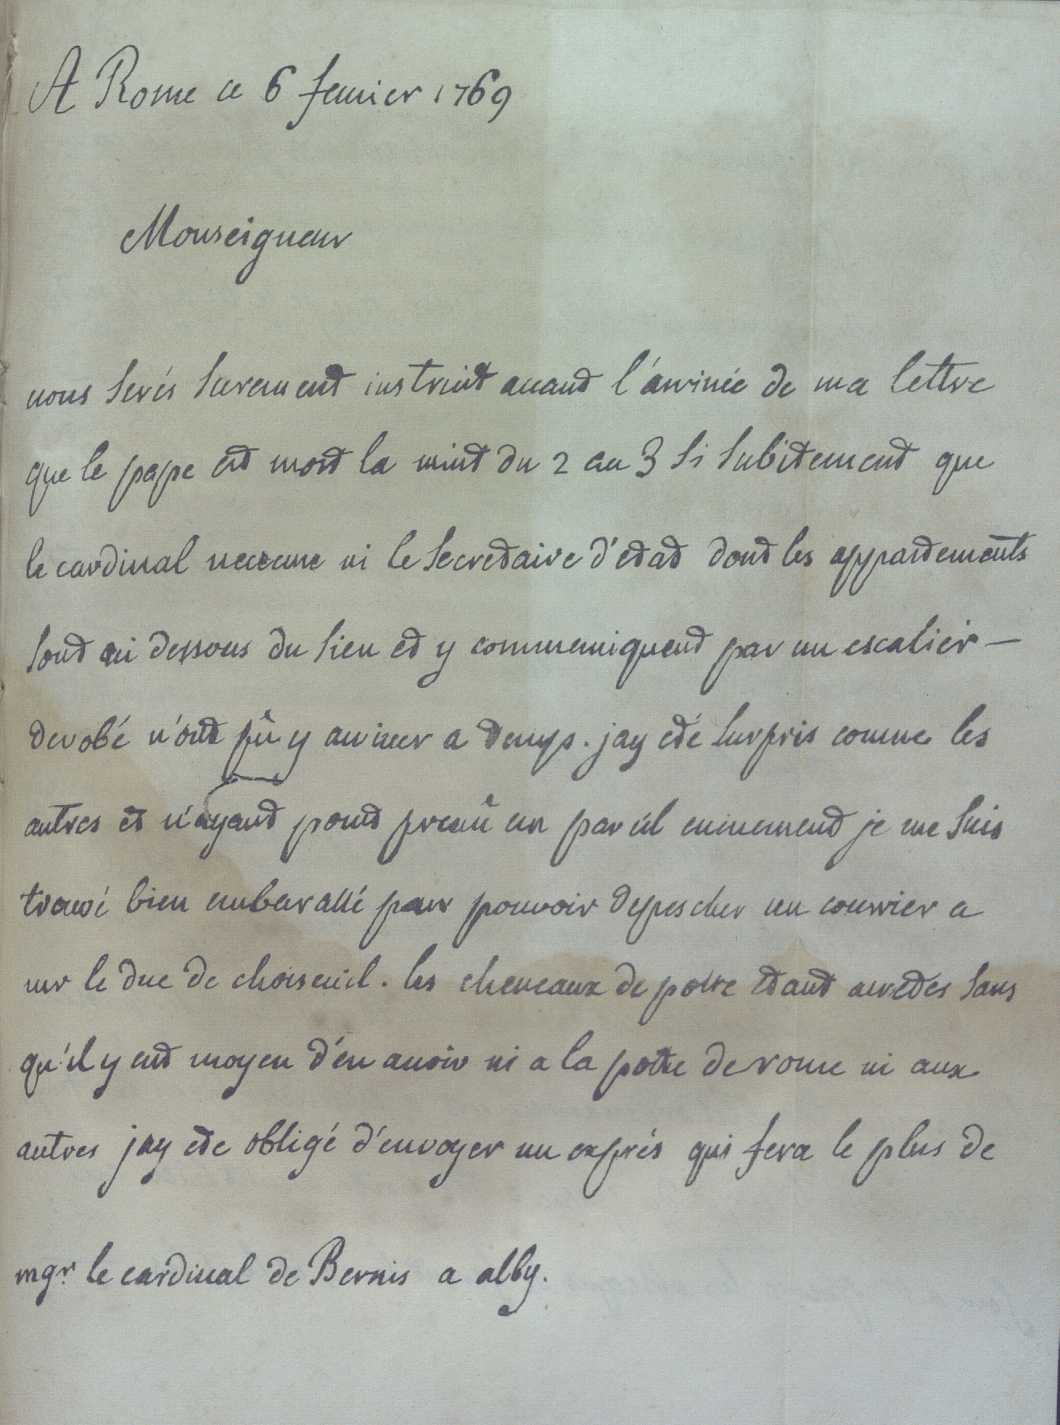 A Rome ce 6 fevrier 1769
Monseigneur
vous serés surement instruit avant l'arrivée de ma lettre
que le pape est mort la nuit du 2 au 3 si subitement que
le cardinal neveu ni le secretaire d'etat dont les appartements
sont au dessous du sien et y communiquent par un escalier —
derobé n'ont pû y arriver a temps. jay eté surpris comme les
autres et n'ayant point prevû un pareil evenement je me suis
trouvé bien embarassé pour pouvoir depescher un courrier a
mr le duc de choiseuil. les cheveaux de poste etant arretés sans
qu'il y eut moyen d'en avoir ni a la poste de rome ni aux
autres jay eté obligé d'envoyer un exprés qui fera le plus de
mgr le cardinal de Bernis a alby.